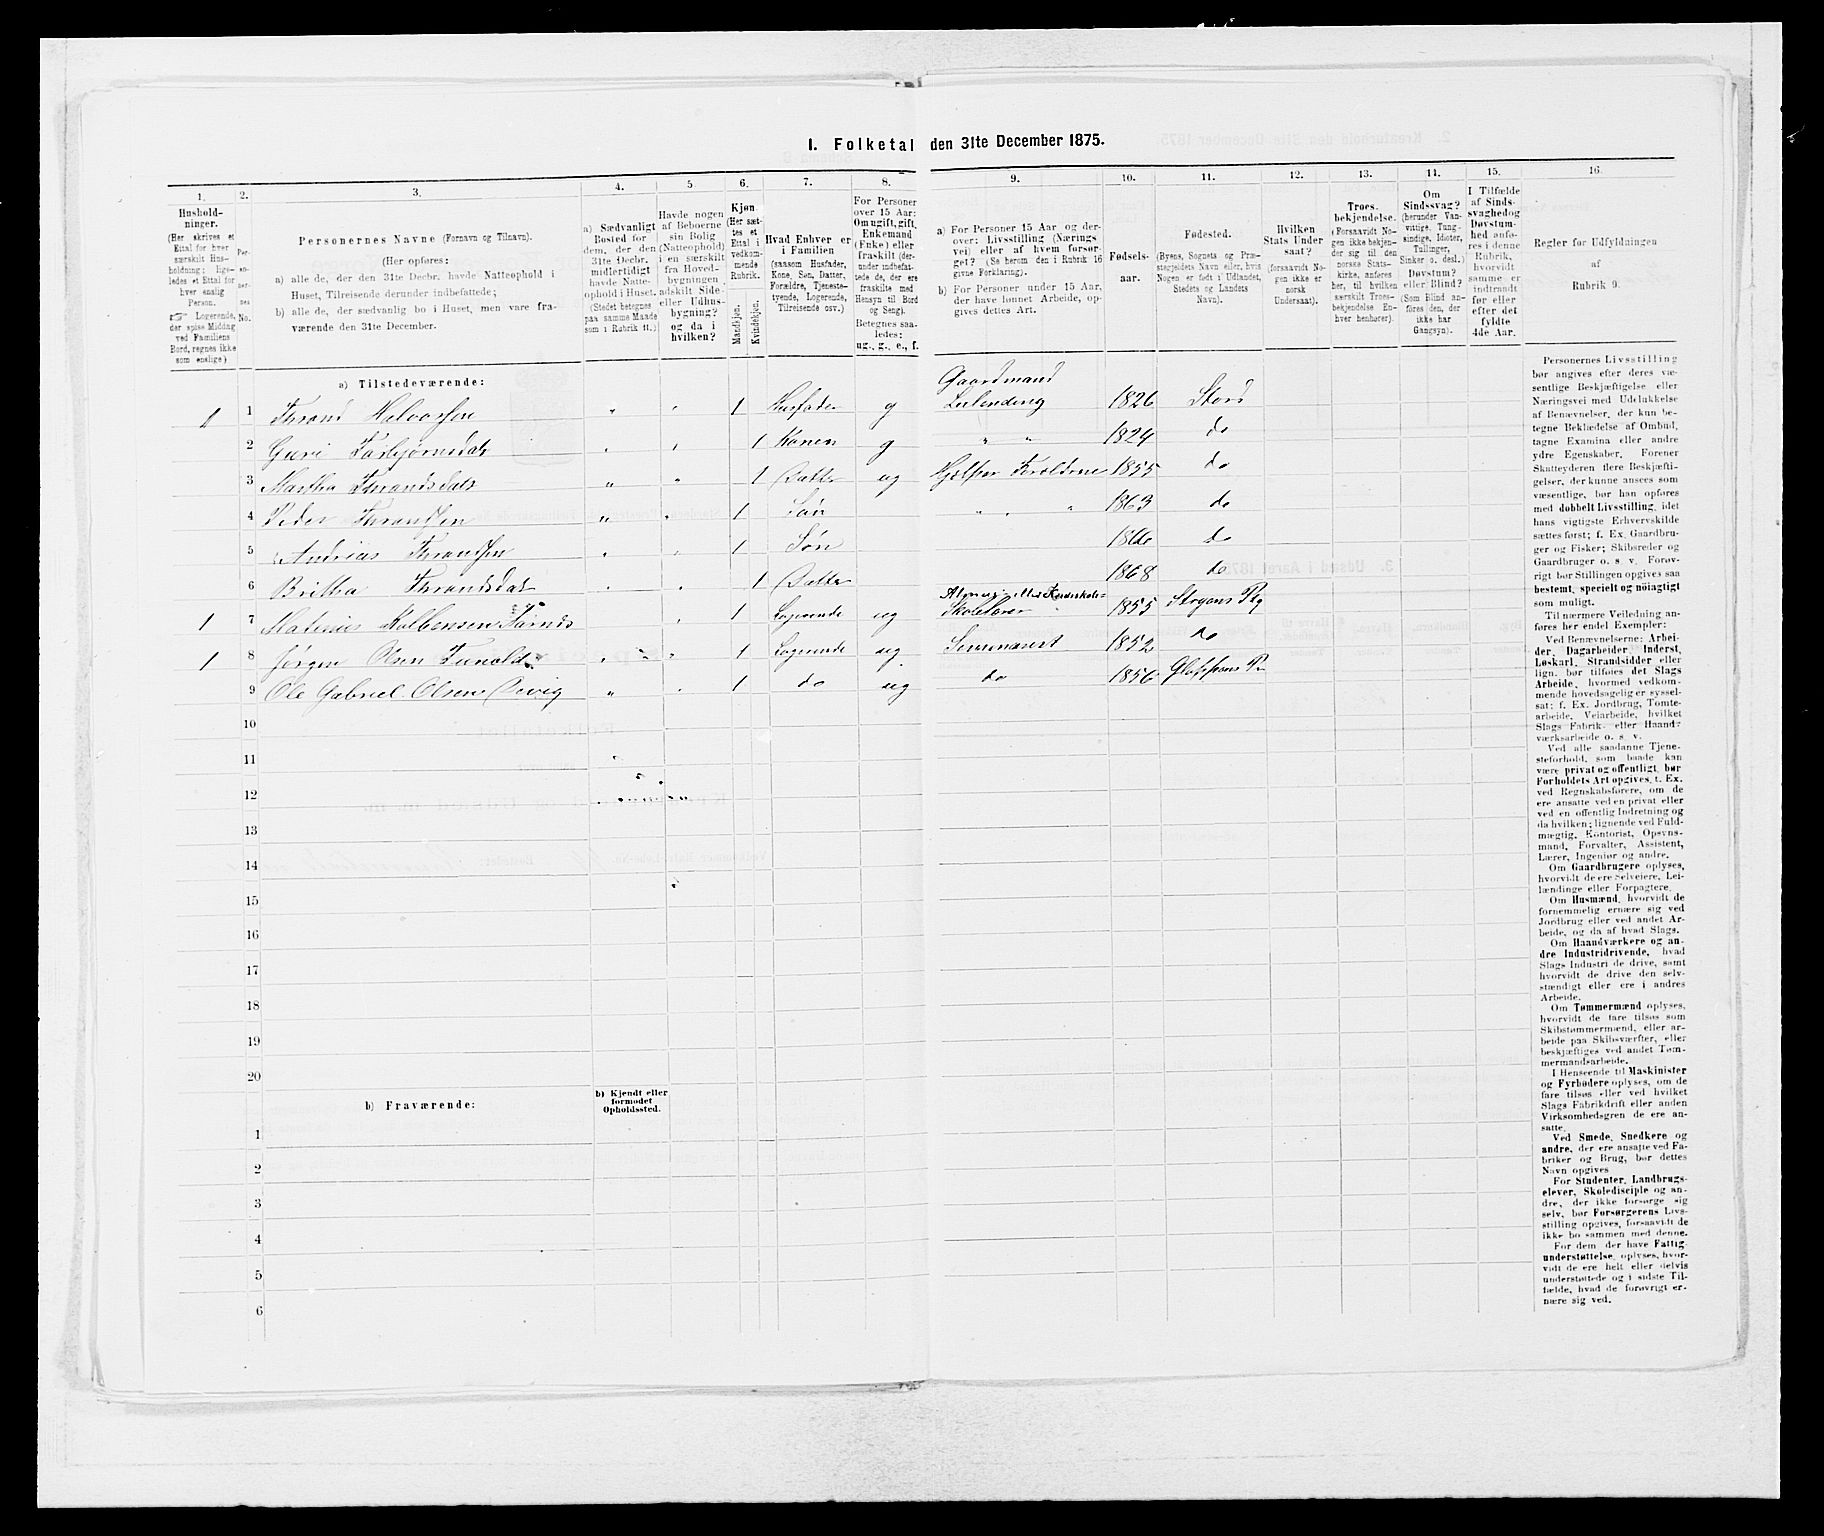 I. Folketal den 31te December 1875.
1. 2. 3. 4. 5. 6. 7. 8. 9. 10. 11. 12. 13. 14. 15. 16.
Hushold-
ninger.
(Her skrives et
Ettal for hver
særskilt Hus-
holdning; lige-
ledes et Ettal for
hver enslig
Person.
☞ Logerende,
der spise Middag
ved Familiens
Bord, regnes ikke
som enslige)
Per-
so-
ner-
nes
No.
Personernes Navne (Fornavn og Tilnavn).
(Her opføres:
a) alle de, der den 31te Decbr. havde Natteophold i
Huset, Tilreisende derunder indbefattede;
b) alle de, der sædvanlig bo i Huset, men vare fra-
værende den 31te December.
a) Sædvanligt
Bosted for
dem, der den
31te Decbr.
midlertidigt
havde Natte-
ophold i Huset.
(Stedet betegnes
paa samme Maade
som i Rubrik 11.)
Havde nogen
af Beboerne
sin Bolig
(Natteophold)
i en særskilt
fra Hoved-
bygningen
adskilt Side-
eller Udhus-
bygning?
og da i
hvilken?
Kjøn.
(Her sæt-
tes et
Ettal i
vedkom-
mende
Rubrik.
Mandkjøn.
Kvindekjøn.
Hvad Enhver er
i Familien
(saasom Husfader,
Kone, Søn, Datter,
Forældre, Tjeneste-
tyende, Logerende,
Tilreisende osv.)
For Personer
over 15 Aar:
Om ugift, gift,
Enkemand
(Enke) eller
fraskilt (der-
under indbefat-
tede de, der ere
fraskilte med
Hensyn til Bord
og Seng).
Betegnes saa-
ledes:
ug., g., e., f.
a) For Personer 15 Aar og der-
over: Livsstilling (Nærings-
vei) eller af hvem forsør-
get? (Se herom den i Rubrik 16
givne Forklaring).
b) For Personer under 15 Aar,
der have lønnet Arbeide, op-
gives dettes Art.
Fødsels-
aar.
Fødested.
(Byens, Sognets og Præ-
stegjeldets Navn eller, hvis
Nogen er født i Udlandet,
Stedets og Landets
Navn).
Hvilken
Stats Under-
saat?
(forsaavidt No-
gen ikke er
norsk
Undersaat).
Troes-
bekjendelse.
(Forsaavidt No-
gen ikke bekjen-
der sig til den
norske Stats-
kirke, anføres
her, til hvilken
særskilt Troes-
bekjendelse En-
hver henhører).
Om
Sindssvag?
(herunder Van-
vittige, Tung-
sindige, Idioter,
Tullinger,
Sinker o. desl.)
Døvstum?
eller Blind?
(Som Blind an-
føres den, der
ikke har
Gangsyn).
I Tilfælde
af Sinds-
svaghed og
Døvstum-
hed anfø-
res i denne
Rubrik,
hvorvidt
samme er
indtraadt
før eller
efter det
fyldte
4de Aar.
Regler for Udfyldningen
af
Rubrik 9.
a) Tilstedeværende:
1 1 Thrond Halvorsen 1 Husfader g Gaardmand Leilending 1826 Stord
2 Guri Torbjørnsdat 1 Konen g " " 1824 do
3 Martha Throndsdatr 1 Datter ug Hjælper Foreldrene 1855 do
4 Peder Throndsen 1 Søn " " " 1863 do
5 Andrias Throndsen 1 Søn 1866 do
6 Britha Throndsdat 1 Datter 1868 do
1 7 1 Logerende ug Skolelærer 1855 Stryens Pg
1 8 Jørgen Olsen 1 Logerende ug Seminarist 1852 do
9 Ole Gabriel Olsen 1 do ug do 1856
10
11
12
13
14
15
16
17
18
19
20
b) Fraværende:
b) Kjendt eller
formodet
Opholdssted.
1
2
3
4
5
6
Personernes Livsstilling
bør angives efter deres væ-
sentlige Beskjæftigelse eller
Næringsvei med Udelukkelse
af Benævnelser, der kun be-
tegne Beklædelse af Ombud,
tagne Examina eller andre
ydre Egenskaber. Forener
Skatteyderen flere Beskjæfti-
gelser, der kunne ansees som
væsentlige, bør han opføres
med dobbelt Livsstilling, idet
hans vigtigste Erhvervskilde
sættes først; f. Ex. Gaardbru-
ger og Fisker; Skibsreder og
Gaardbruger o. s. v. Forøv-
rigt bør Stillingen opgives saa
bestemt, specielt og nøiagtigt
som muligt.
Til nærmere Veiledning an-
føres her endel Exempler:
Ved Benævnelserne: Arbei-
der, Dagarbeider, Inderst,
Løskarl, Strandsidder eller
lign. bør tilføies det Slags
Arbeide, hvormed vedkom-
mende hovedsagelig er syssel-
sat; f. Ex. Jordbrug, Tomte-
arbeide, Veiarbeide, hvilket
Slags Fabrik- eller Haand-
værksarbeide o. s. v.
Ved alle saadanne Tjene-
steforhold, som baade kan
være privat og offentligt, bør
Forholdets Art opgives, t. Ex.
ved Regnskabsførere, om de
ere ansatte ved en privat eller
ved en offentlig Indretning og
da hvilken; lignende ved Fuld-
mægtig, Kontorist, Opsyns-
mand, Forvalter, Assistent,
Lærer, Ingeniør og andre.
Om Gaardbrugere oplyses,
hvorvidt de ere Selveiere, Lei-
lændinge eller Forpagtere.
Om Husmænd, hvorvidt de
fornemmelig ernære sig ved
Jordbrug eller ved andet Ar-
beide, og da af hvad Slags.
Om Haandværkere og an-
dre Industridrivende, hvad
Slags Industri de drive, samt
hvorvidt de drive den selv-
stændigt eller ere i andres
Arbeide.
Om Tømmermænd oplyses,
hvorvidt de fare tilsøs som
Skibstømmermænd, eller ar-
beide paa Skibsværfter, eller
beskjæftiges ved andet Tøm-
mermandsarbeide.
I Henseende til Maskinister
og Fyrbødere oplyses, om de
fare tilsøs eller ved hvilket
Slags Fabrikdrift eller anden
Virksomhedsgren de ere an-
satte.
Ved Smede, Snedkere og
andre, der ere ansatte ved Fa-
briker og Brug, bør dettes
Navn opgives
For Studenter, Landbrugs-
elever, Skoledisciple og an-
dre, der ikke forsørge sig
selv, bør Forsørgerens Livs-
stilling opgives, forsaavidt de
ikke bo sammen med denne.
For dem, der have Fattig-
understøttelse, oplyses, hvor-
vidt de ere helt eller delvis
understøttede og i sidste Til-
fælde, hvad de forøvrigt er-
nære sig ved.